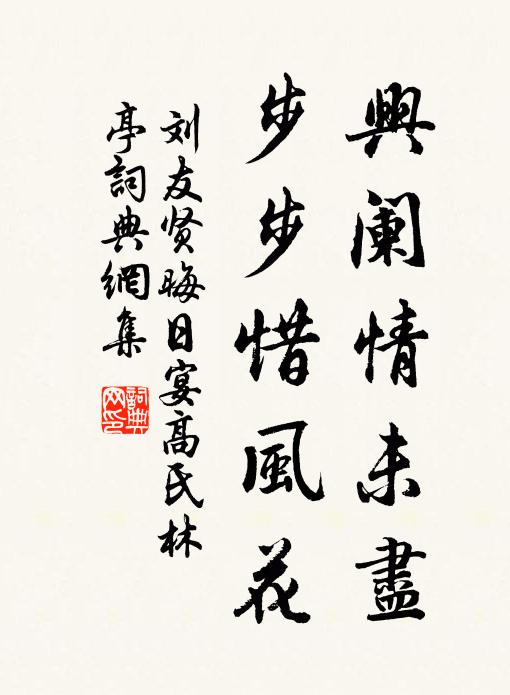 興阑情未盡
步步惜風花
刘友贤晦日宴高氏林
亭詞典網集
詞典
网印